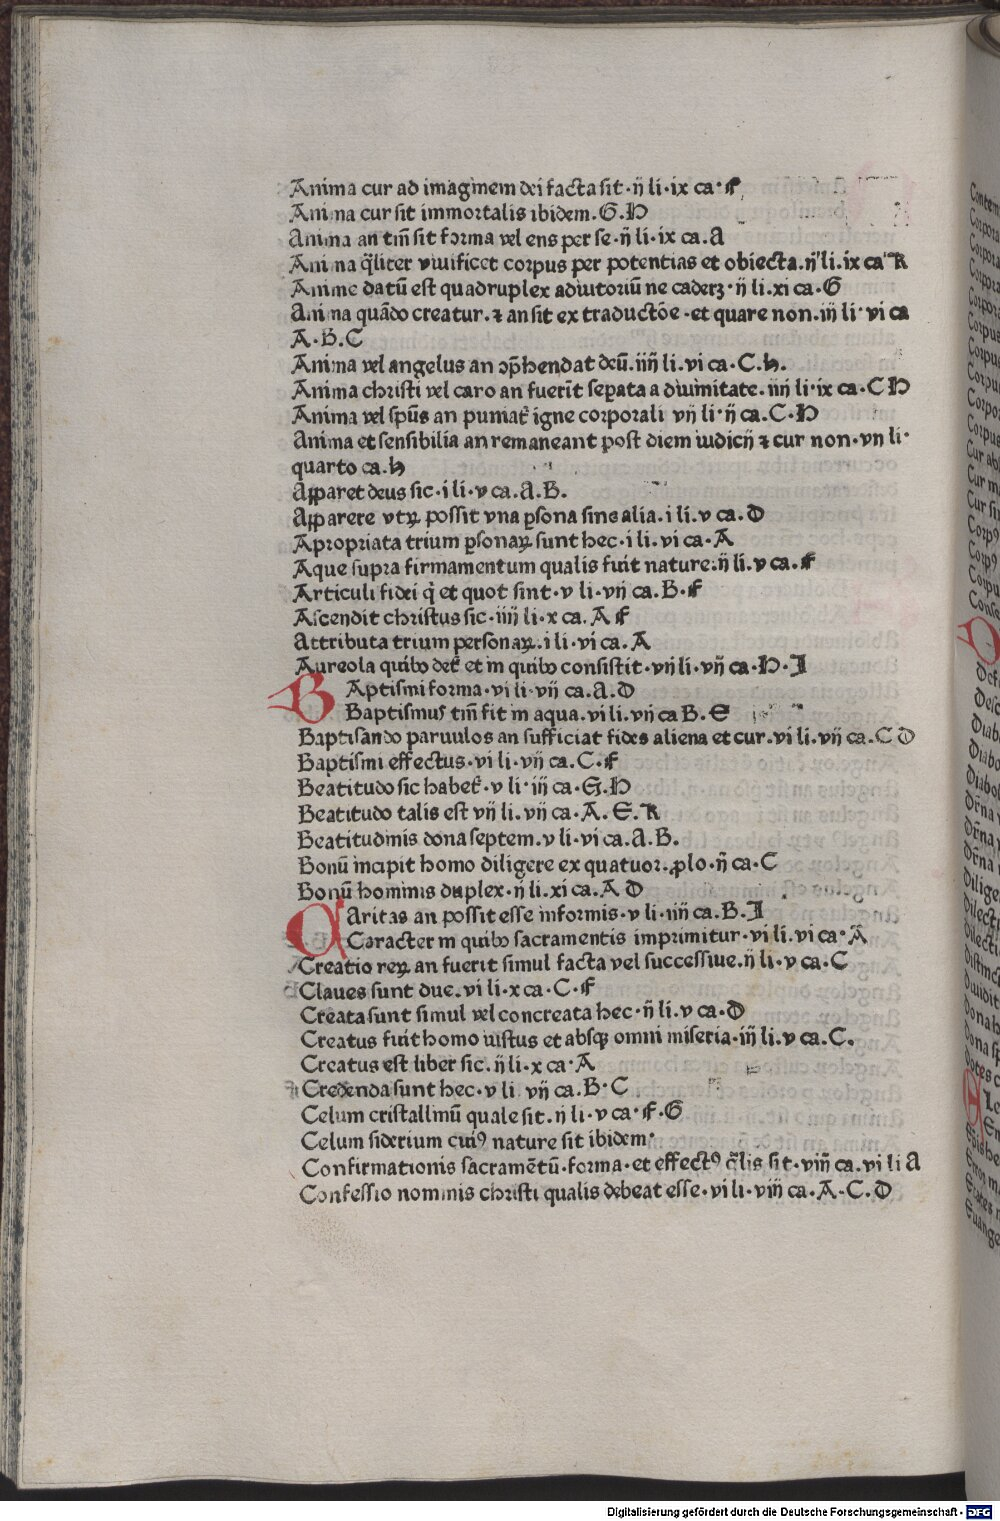 Anima cur ad imaginem dei facta sit·ij li·ix ca·F
Anima cur sit immortalis ibidem.G.H
Anima an tm̄ sit forma vel ens per se·ij li·ix ca.A
Anima q̄liter viuificet corpus per potentias et obiecta.ij li.ix ca·K
Anime datū est quadruplex adiutoriū ne caderꝫ·ij li.xi ca·G
Anima quādo creatur.⁊ an sit ex traductōe·et quare non.iij li·vi ca
A·B.C
Anima vel angelus an ꝯp̄hendat deū.iiij li.vi ca·C.h.
Anima christi vel caro an fuerīt seꝑata a diuinitate.iiij li·ix ca·C H
Anima vel sp̄us an puniat᷑ igne corporali vij li·ij ca.C·H
Anima et sensibilia an remaneant post diem iudicij ⁊ cur non·vij li·
quarto ca.h
Apparet deus sic·i li·v ca.A.B.
Apparere vtꝝ possit vna ꝑsona sine alia.i li.v ca.D
Apropriata trium ꝑsonaꝝ sunt hec·i li.vi ca·A
Aque supra firmamentum qualis fuit nature.ij li.v ca.F
Articuli fidei q̄ et quot sint·v li·vij ca.B·F
Ascendit christus sic·iiij li·x ca.A F
Attributa trium personaꝝ.i li.vi ca.A
Aureola quibꝰ det᷑ et in quibꝰ consistit·vij li·vij ca·H·I
BAptismi forma·vi li·vij ca.A.D
Baptismus tm̄ fit in aqua.vi li.vij ca B.E
Baptisando paruulos an sufficiat fides aliena et cur.vi li.vij ca.C D
Baptismi effectus·vi li·vij ca.C.F
Beatitudo sic habet᷑·v li·iij ca·G.H
Beatitudo talis est vij li.vij ca·A.E.K
Beatitudinis dona septem.v li·vi ca.A.B.
Bonū incipit homo diligere ex quatuor.ꝓlo·ij ca·C
Bonū hominis duplex·ij li.xi ca.A D
CAritas an possit esse informis·v li·iiij ca.B.I
Caracter in quibꝰ sacramentis imprimitur·vi li.vi ca·A
Creatio reꝝ an fuerit simul facta vel successiue.ij li·v ca·C
Claues sunt due.vi li·x ca·C·F
Creata sunt simul vel concreata hec·ij li.v ca·D
Creatus fuit homo iustus et absqꝫ omni miseria·iij li.v ca.C.
Creatus est liber sic.ij li·x ca·A
Credenda sunt hec·v li vij ca.B·C
Celum cristallinū quale sit.ij li·v ca·F·G
Celum siderium cuiꝰ nature sit ibidem·
Confirmationis sacramētū·forma·et effectꝰ q̄lis sit·viij ca.vi li A
Confessio nominis christi qualis debeat esse·vi li·viij ca·A·C.D
Digitalisierung gefördert durch die Deutsche Forschungsgemeinschaft - DFG